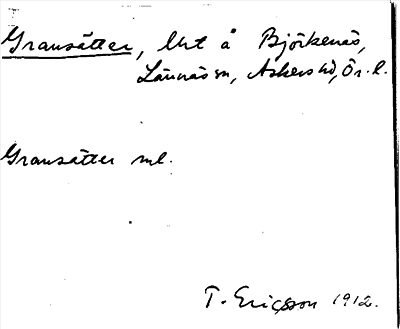 Gransätter, lht å Björkenäs,
Lännäs sn, Askers hd, Ör. l.
Gransätter ml.
T. Ericsson 1912.